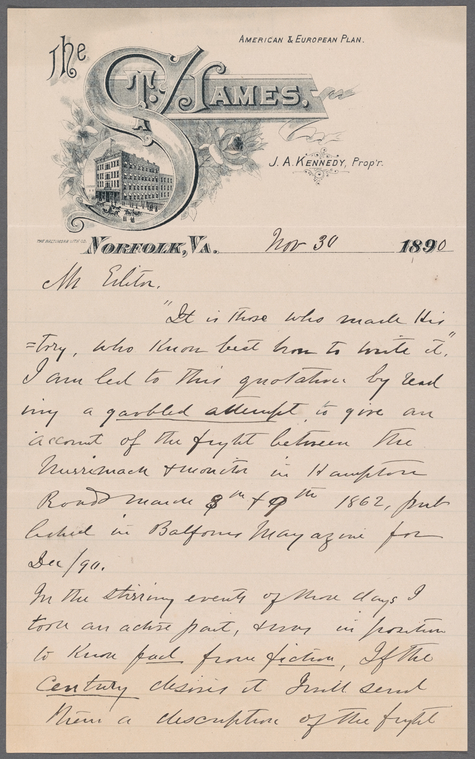 American & European Plan.
The
St. James.
J. A. Kennedy, Prop'r.
Norfolk, Va. Nov 30 1890
Mr Editor,
"It is those who made His
=tory, who know best how to write it".
I am led to this quotation by read
ing a garbled attempt to give an
account of the fight between the
Merrimack & monitor in Hampton
Roads march 8th & 9th 1862, pub
lished in Balfours Magazine for
Dec/90.
In the stirring events of those days I
took an active part, & was in position
to know fact from fiction, If the
Century desires it I will send
them a description of the fight